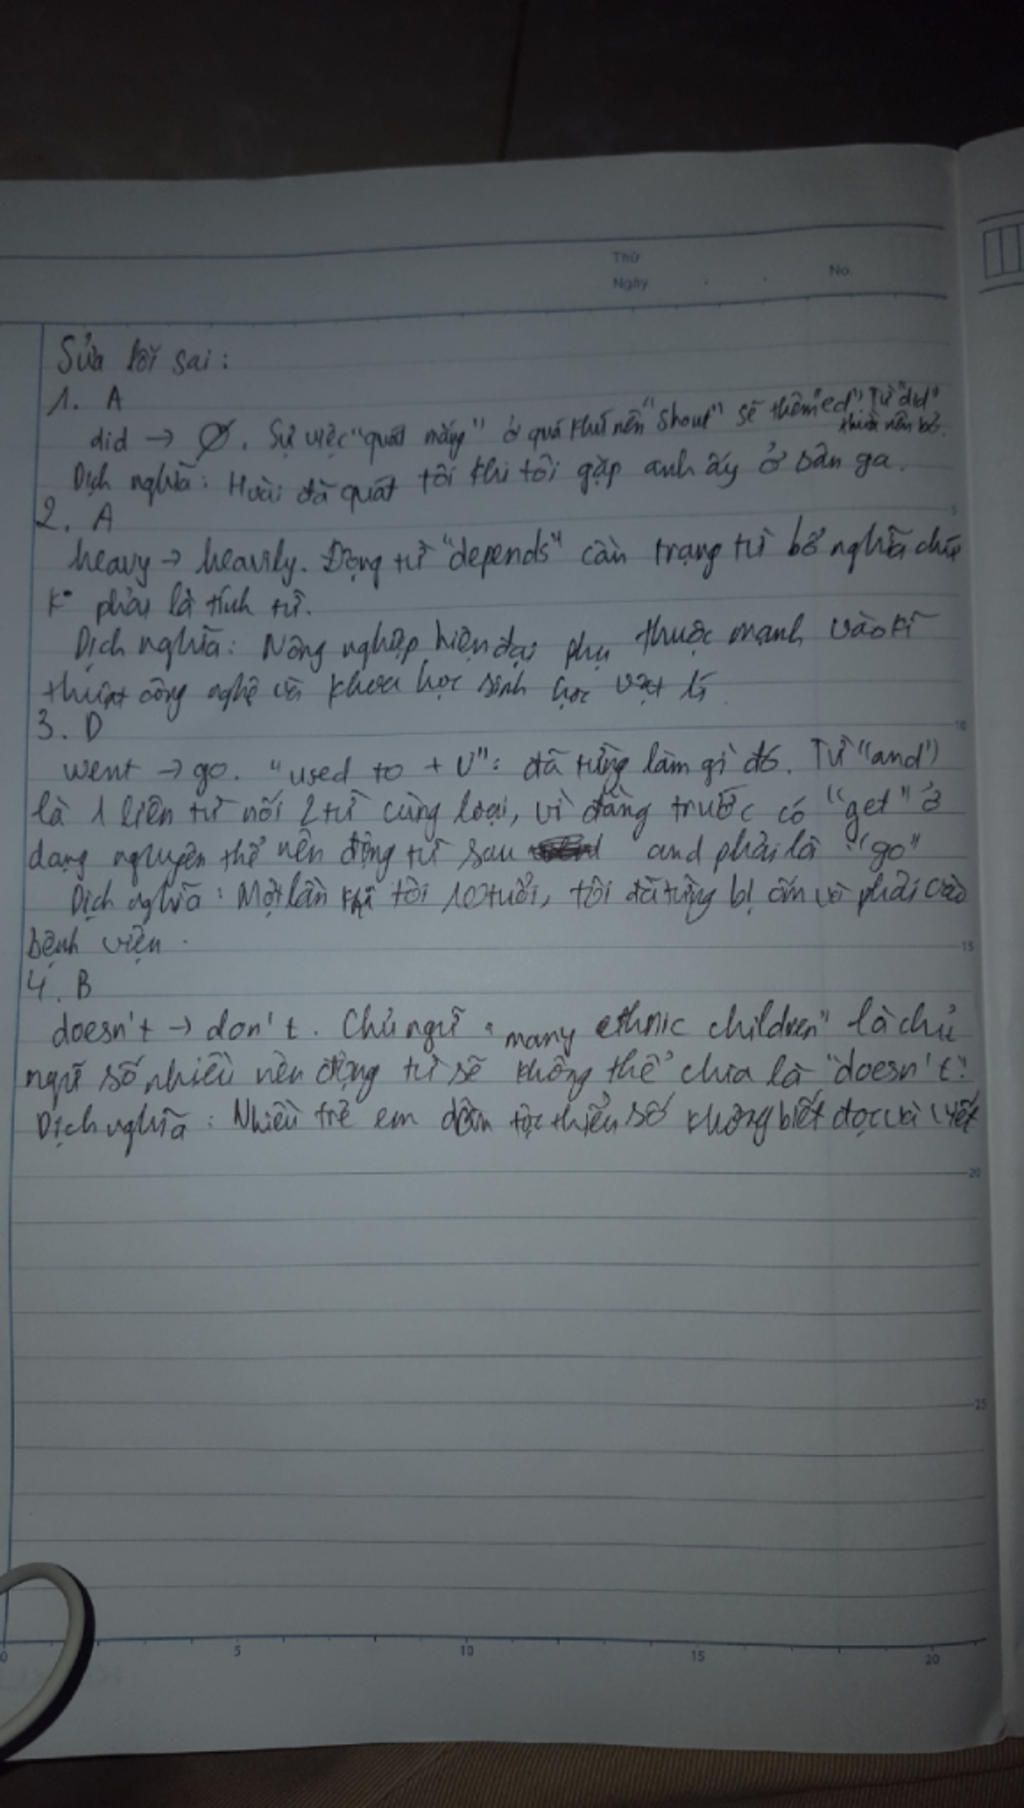 Thứ
Ngày . . No.
Sửa lỗi sai:
1. A
did → Ø. Sự việc "quát mắng" ở quá khứ nên "shout" sẽ thêm "ed", Từ "did"
thừa nên bỏ.
Dịch nghĩa: Hoài đã quát tôi khi tôi gặp anh ấy ở sân ga.
2. A
heavy → heavily. Động từ "depends" cần trạng từ bổ nghĩa chứ
k° phải là tính từ.
Dịch nghĩa: Nông nghiệp hiện đại phụ thuộc mạnh vào kĩ
thuật công nghệ và khoa học sinh học vật lí
3. D
went → go. "used to + V": đã từng làm gì đó. Từ "and"
là 1 liên từ nối 2 từ cùng loại, vì đằng trước có "get" ở
dạng nguyên thể nên động từ sau and phải là "go"
Dịch nghĩa: Một lần khi tôi 10 tuổi, tôi đã từng bị ốm và phải vào
bệnh viện.
4. B
doesn't → don't. Chủ ngữ "many ethnic children" là chủ
ngữ số nhiều nên động từ sẽ không thể chia là "doesn't".
Dịch nghĩa: Nhiều trẻ em dân tộc thiểu số không biết đọc và viết
5
10
15
20
25
0 5 10 15 20